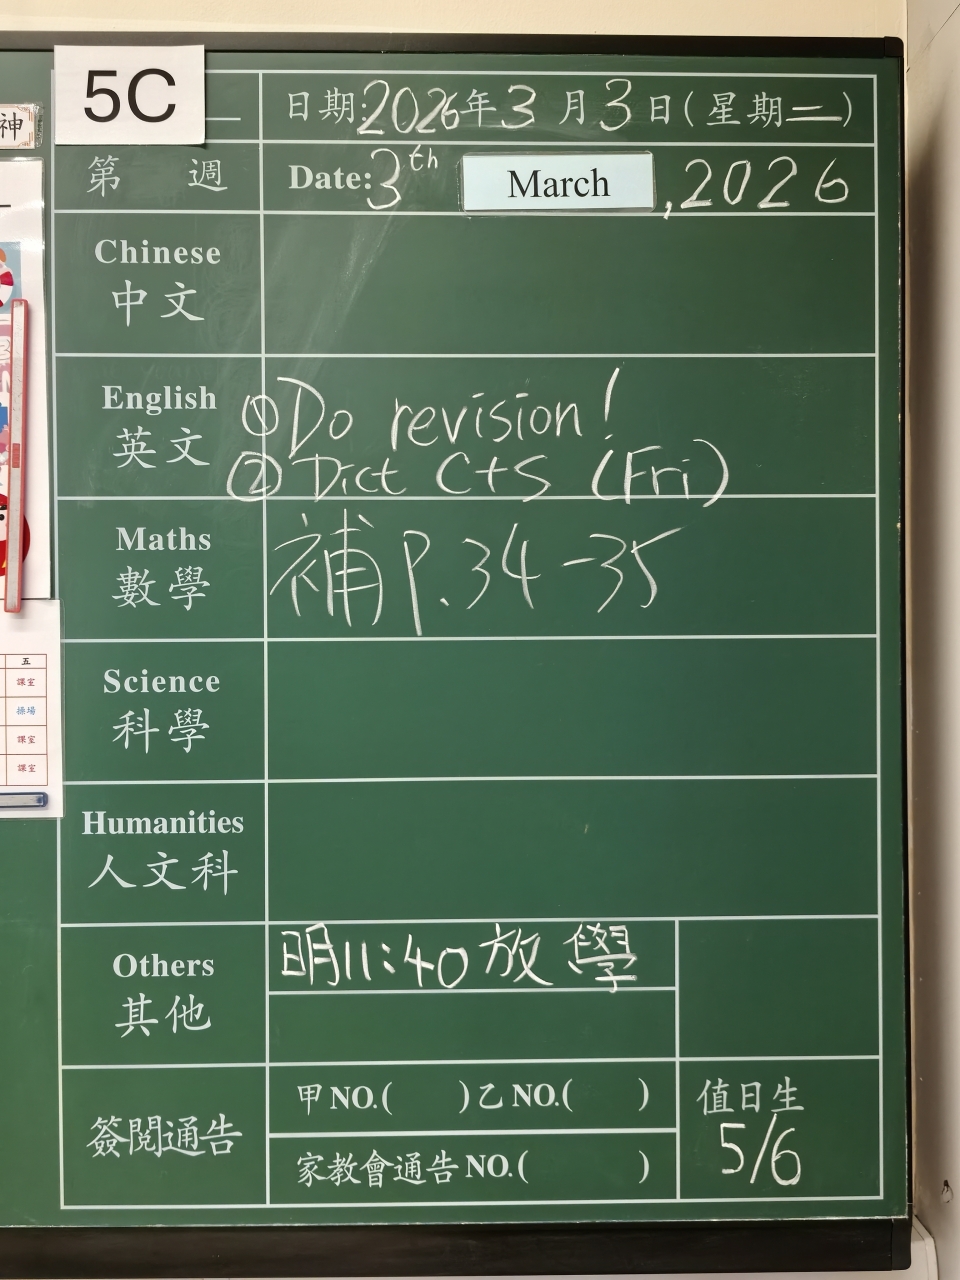 5C
神
日期:2026年3月3日(星期二)
第 週
Date: 3th March, 2026
Chinese
中文
English
英文
①Do revision!
②Dict C+S (Fri)
Maths
數學
補P.34-35
Science
科學
Humanities
人文科
Others
其他
明11:40放學
簽閱通告
甲NO.( )乙NO.( )
家教會通告NO.( )
值日生
5/6
五
課室
操場
課室
課室